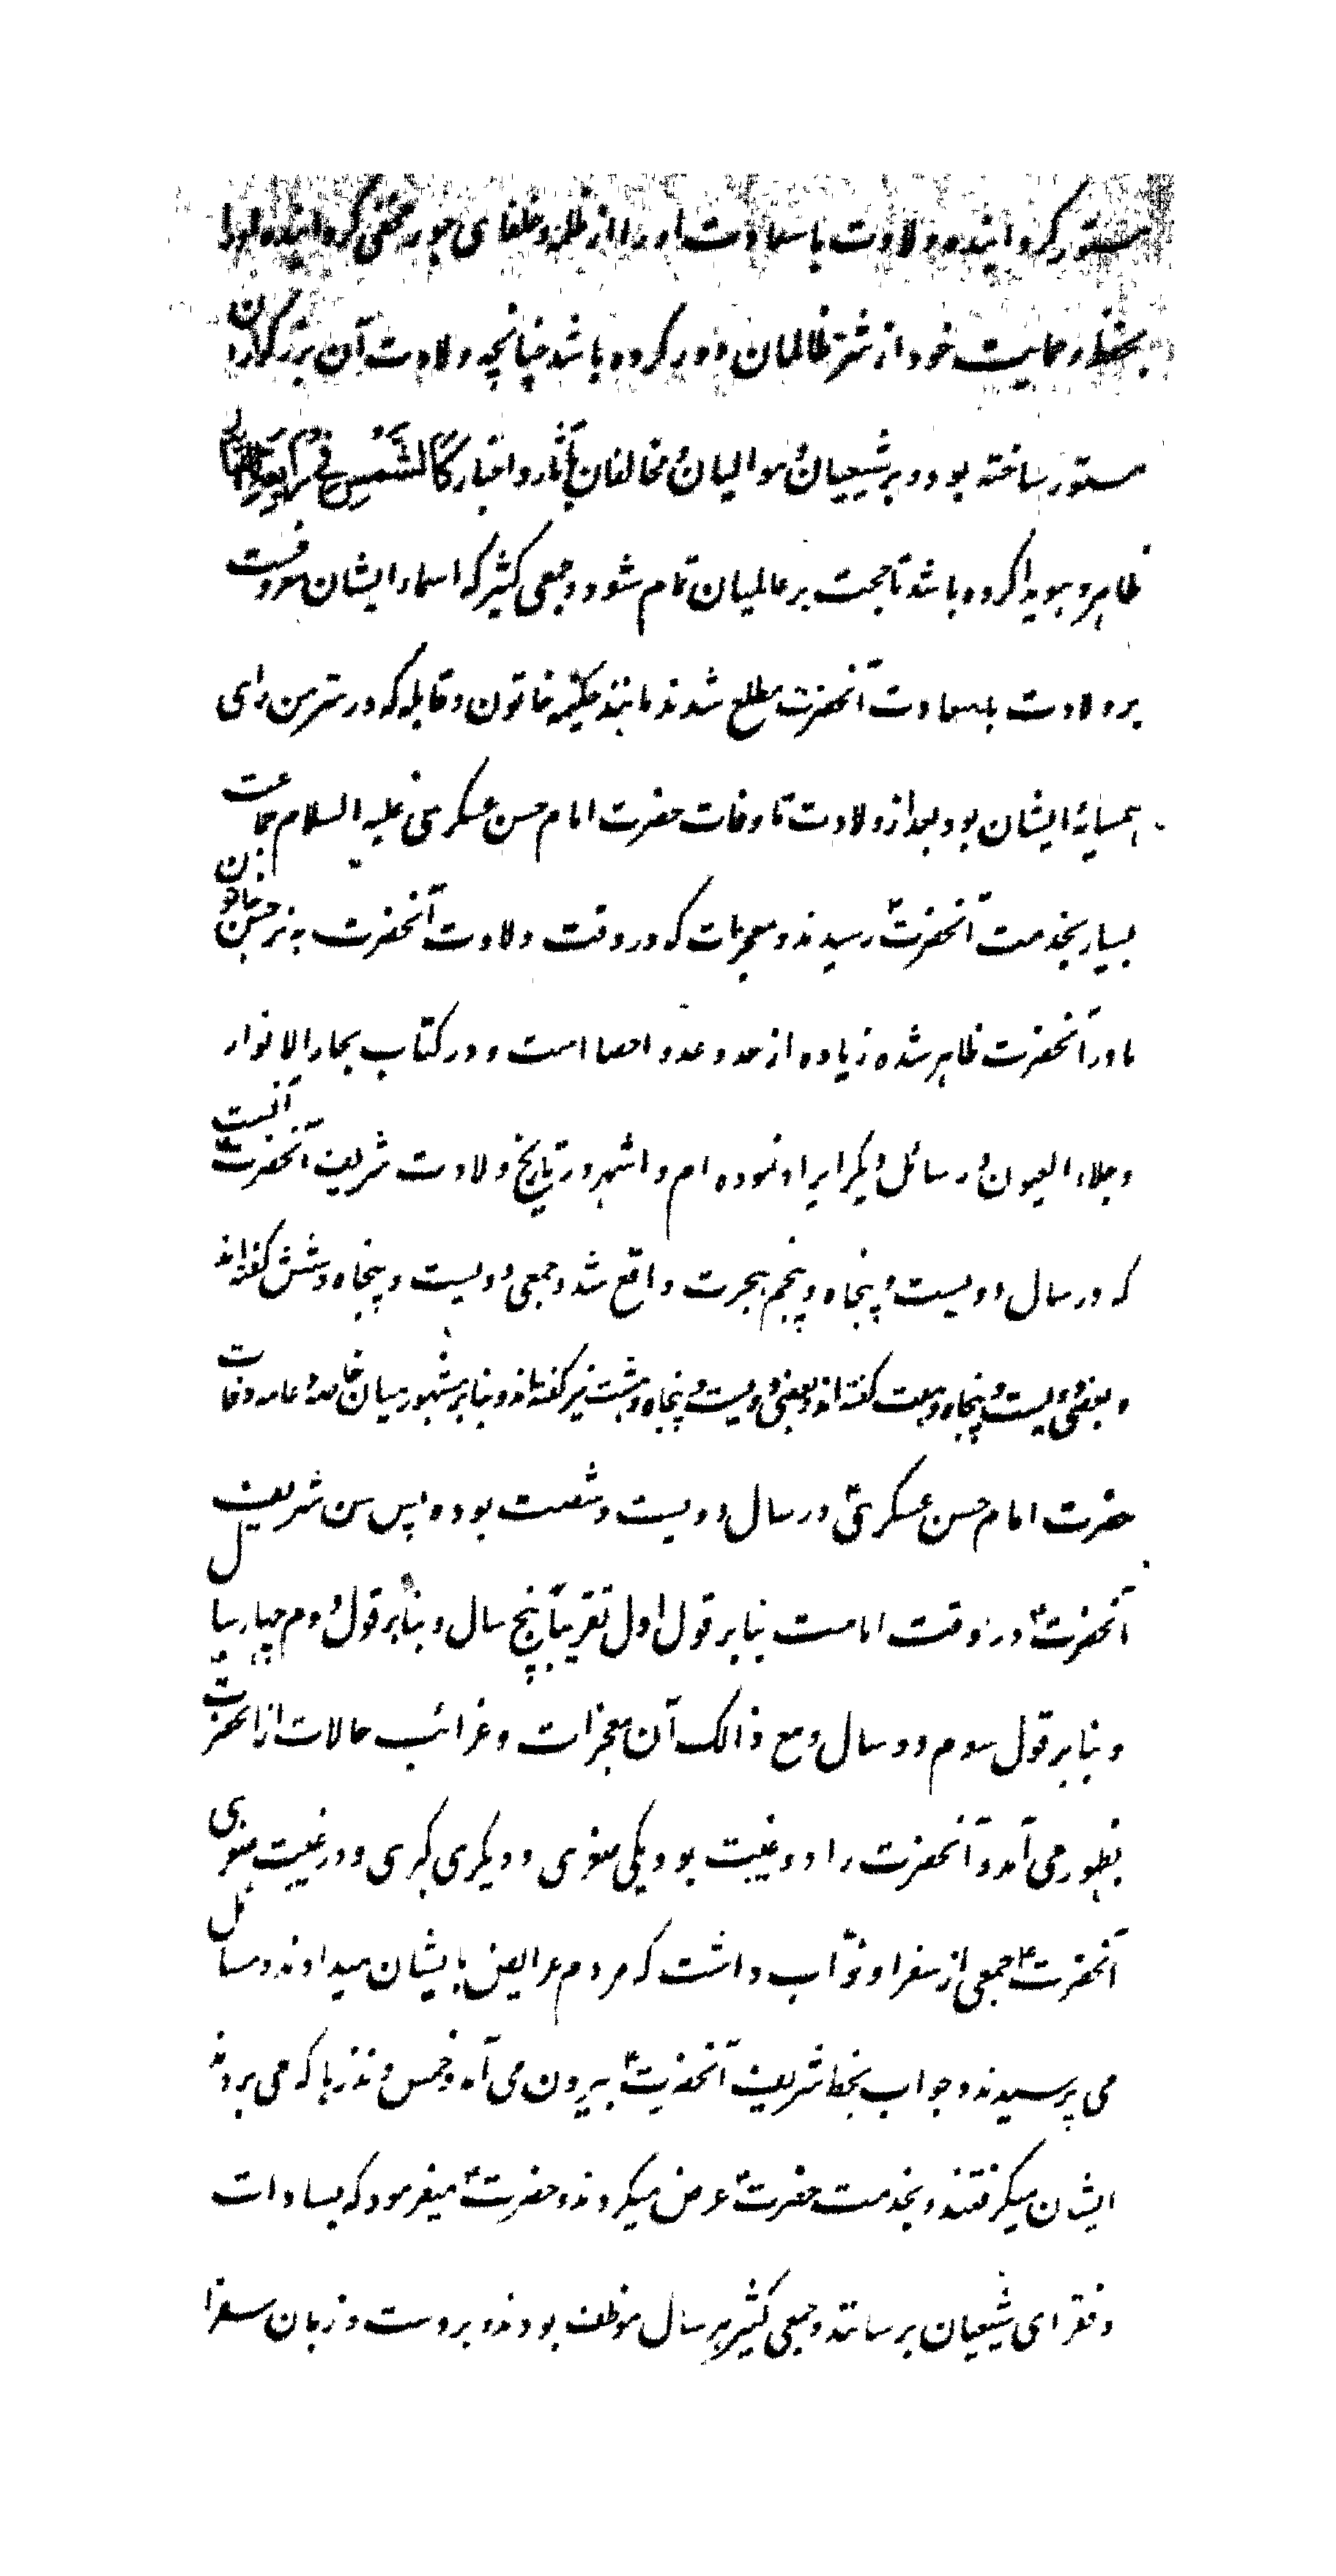 مستور گردانیده و ولادت با سعادت او را از ظلمه و خلفای جور مخفی گردانیده او را
بحفظ و حمایت خود از شر ظالمان دور کرده باشد چنانچه ولادت آن بزرگواران
مستور ساخته بود و بر شیعیان و موالیان و مخالفان بآثار و اخبار کالشمس فی
ظاهر و هویدا کرده باشد تا حجت بر عالمیان تمام شود و جمعی کثیر که اسماء ایشان معروفست
بر ولادت با سعادت آنحضرت مطلع شدند مانند حکیمه خاتون و قابله که در سرمن رای
همسایهٔ ایشان بود و بعد از ولادت تا وفات حضرت امام حسن عسکری علیه السلام جماعت
بسیار بخدمت آنحضرت رسیدند و معجزات که در وقت ولادت آنحضرت به نرجس خاتون
مادر آنحضرت ظاهر شده زیاده از حد و عدد احصا است و در کتاب بحار الانوار
و جلاء العیون و رسائل دیگر ایراد نموده ام و اشهر در تاریخ ولادت شریف آنحضرت آنست
که در سال دویست و پنجاه و پنجم هجرت واقع شد و جمعی دویست و پنجاه و شش گفته اند
و بعضی دویست و پنجاه و هفت گفته اند و بعضی دویست و پنجاه و هشت نیز گفته اند و بنابر مشهور میان خاصه و عامه وفات
حضرت امام حسن عسکری در سال دویست و شصت بوده پس سن شریف
آنحضرت در وقت امامت بنابر قول اول تقریباً پنج سال و بنابر قول دوم چهار سال
و بنابر قول سوم دو سال و مع ذالک آن معجزات و غرائب حالات از آنحضرت
بظهور می آمد و آنحضرت را دو غیبت بود یکی صغری و دیگری کبری و در غیبت صغری
آنحضرت جمعی از سفرا و نوّاب داشت که مردم عرایض بایشان میدادند و مسائل
می پرسیدند و جواب بخط شریف آنحضرت بیرون می آمد و خمس و نذرها که می بردند
ایشان میگرفتند و بخدمت حضرت عرض میکردند و حضرت میفرمود که بسادات
و فقرای شیعیان برسانند و جمعی کثیر هر سال موظف بودند و بر دست و زبان سفرا